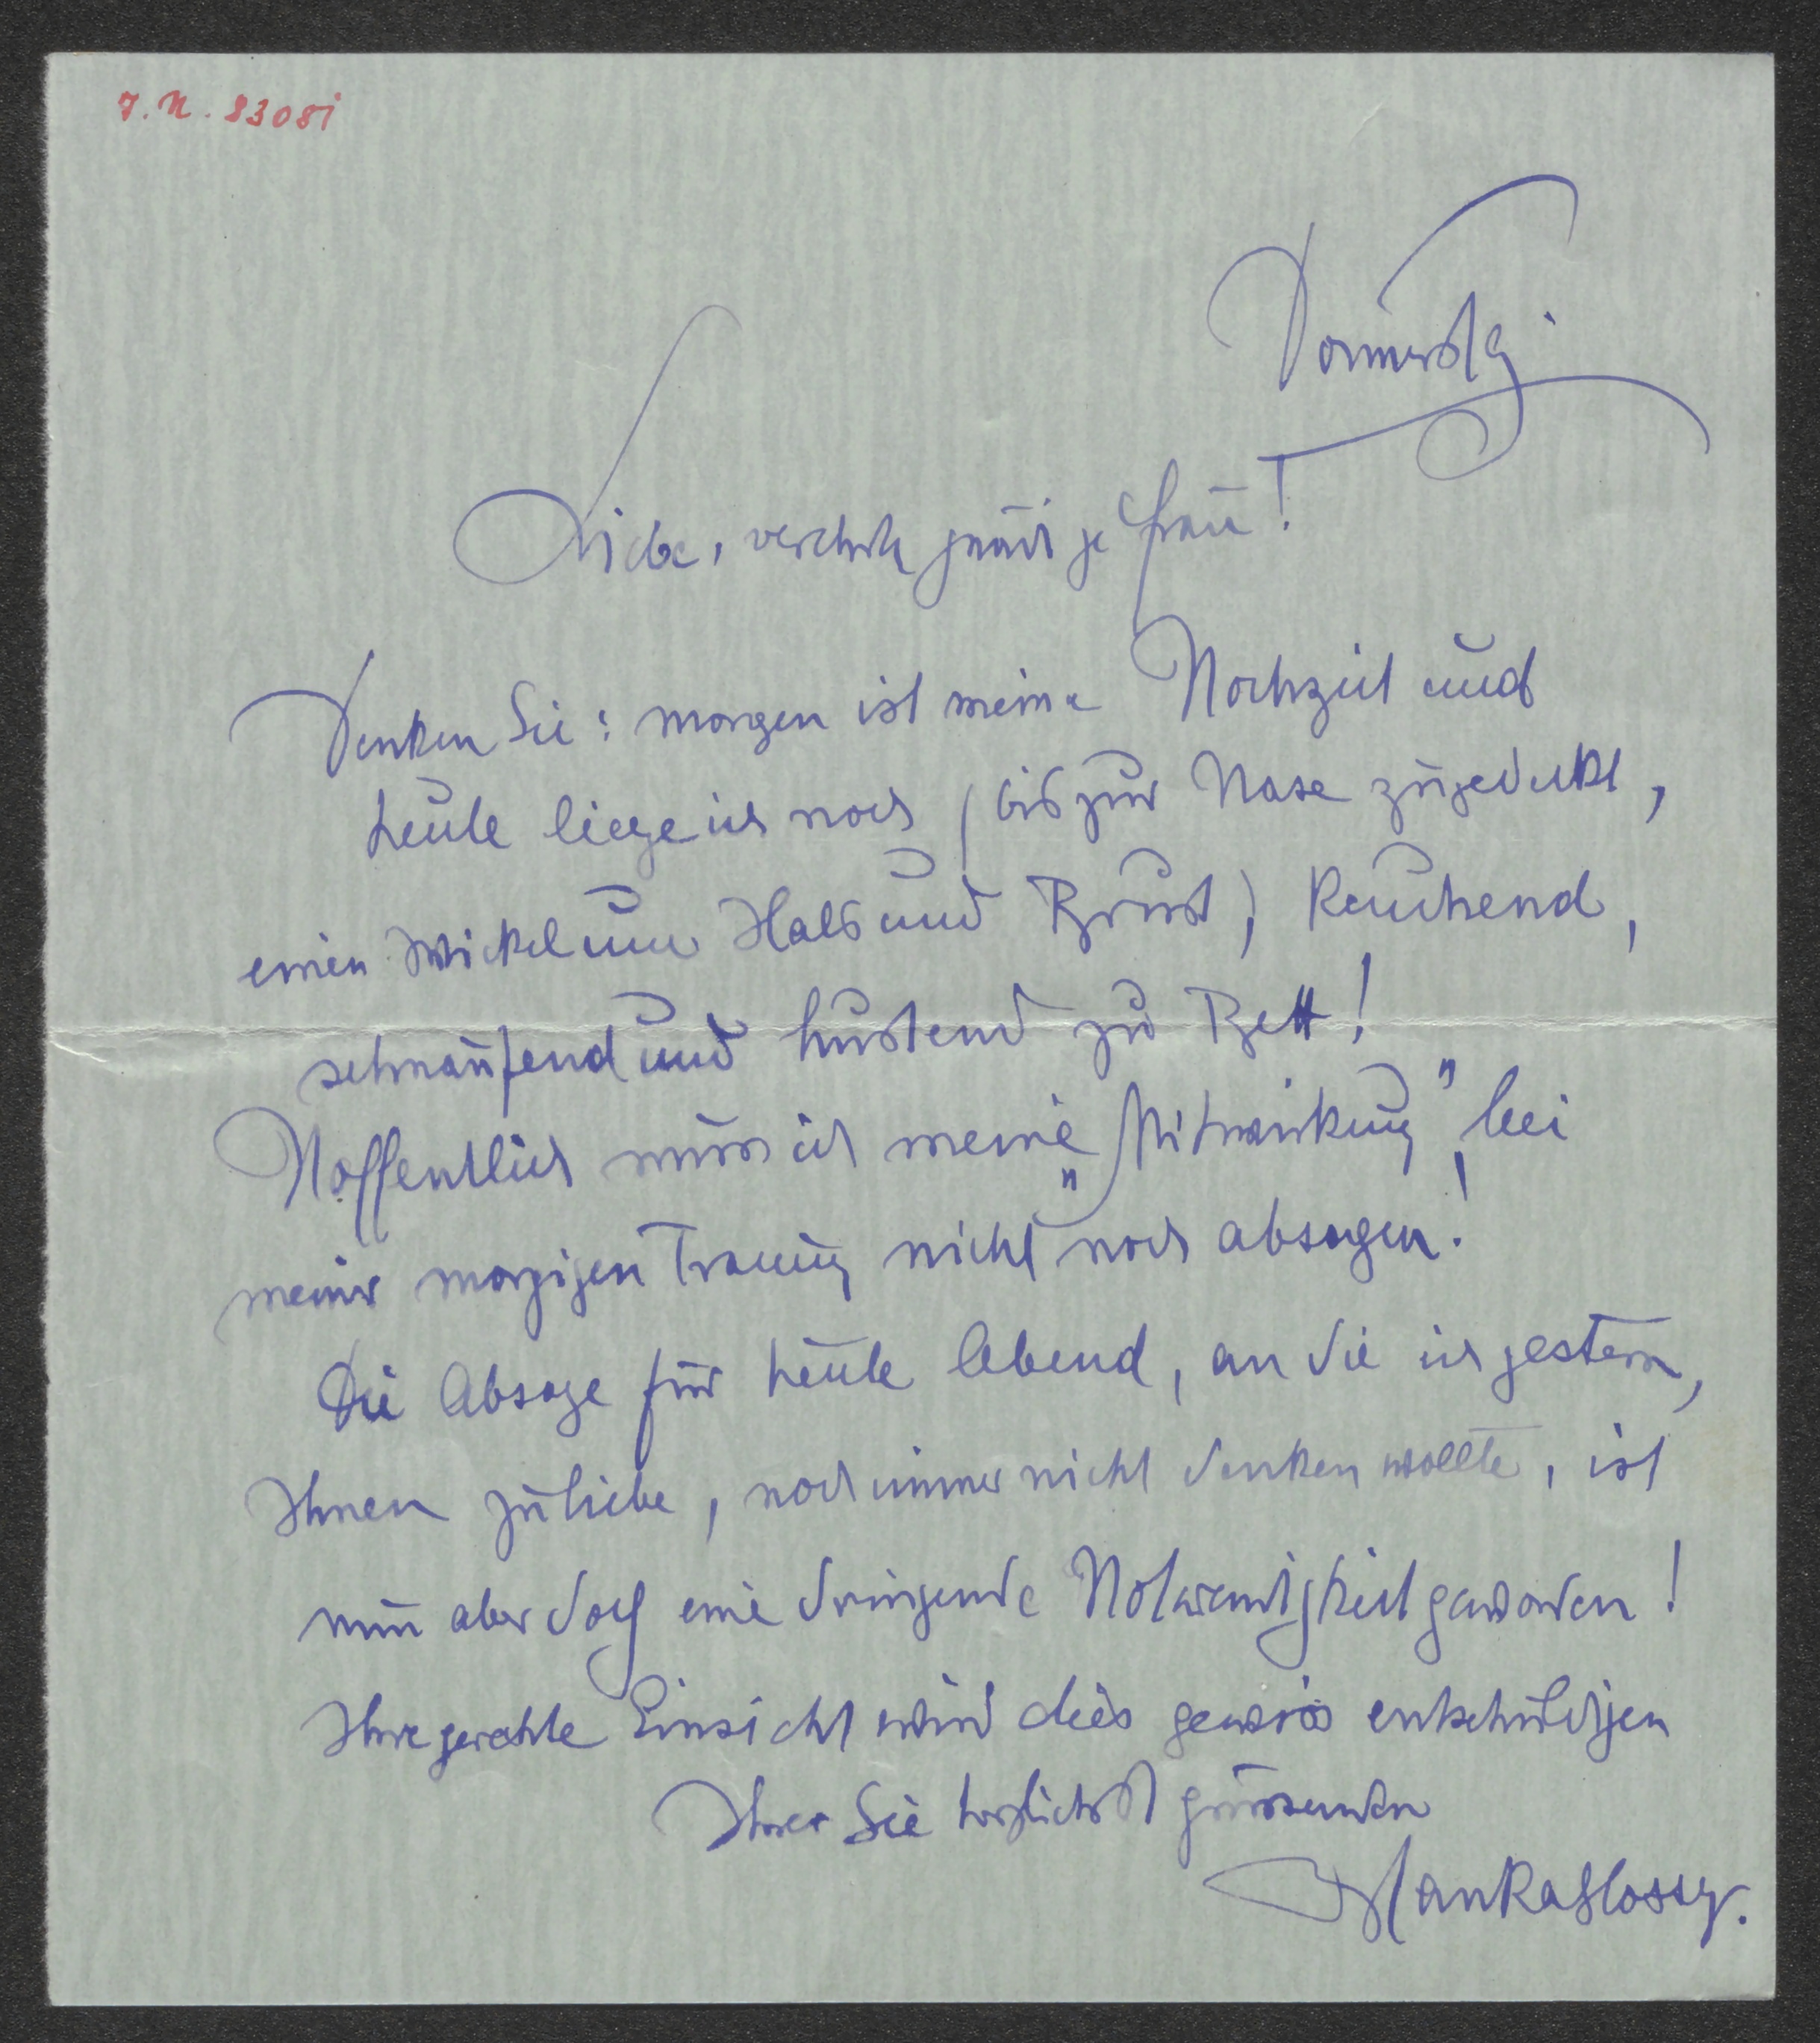 J.N. 83081
Donnerstg.
Liebe, verehrte gnädige Frau!
Denken Sie: morgen ist meine Hochzeit und
heute liege ich noch (bis zur Nase zugedeckt,
einen Wickel um Hals und Brust) keuchend,
schnaufend und hustend zu Bett!
Hoffentlich muss ich meine „Mitwirkung" bei
meiner morgigen Trauung nicht noch absagen!
Die Absage für heute Abend, an die ich gestern,
Ihnen zuliebe, noch immer nicht denken wollte, ist
nun aber doch eine dringende Notwendigkeit geworden!
Ihre gerechte Einsicht wird dies gewiss entschuldigen
Ihrer Sie herzlichst grüssenden
Hanka Glossy.